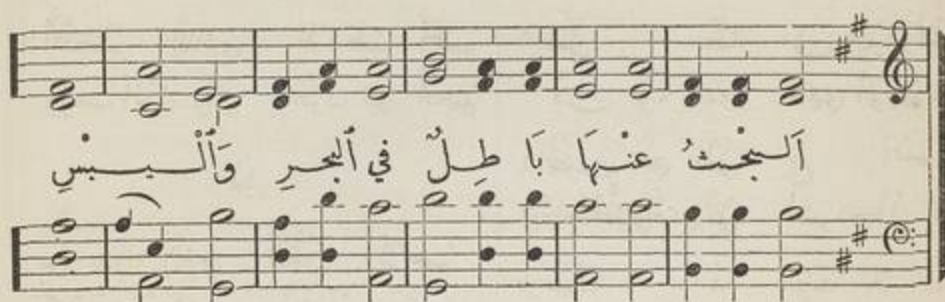 اَلْبَحْثُ عَنْهَا بَا طِلٌ في ٱلبحرِ وَٱلْيَبْسِ